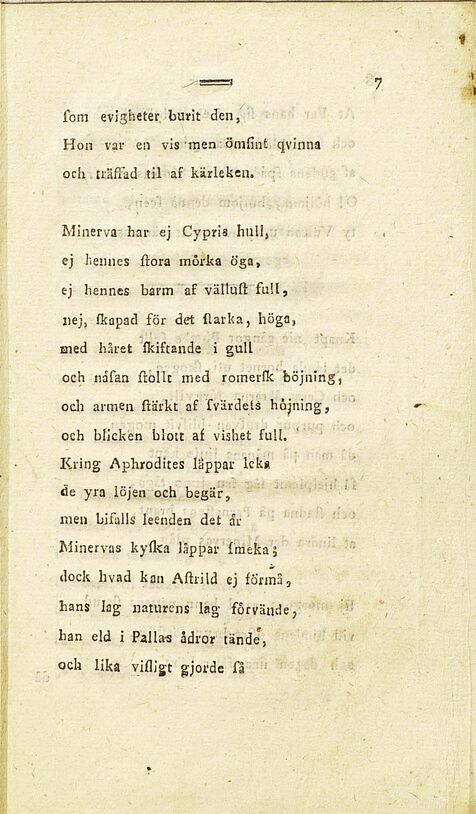 7
ſom evigheter burit den,
Hon var en vis men ömſint qvinna
och träffad til af kärleken.
Minerva har ej Cypris hull,
ej hennes ſtora mörka öga,
ej hennes barm af välluſt full,
nej, ſkapad för det ſtarka, höga,
med håret ſkiftande i gull
och näſan ſtöllt med romerſk böjning,
och armen ſtärkt af ſvärdets höjning,
och blicken blott af vishet full.
Kring Aphrodites läppar leka
de yra löjen och begär,
men bifalls leenden det är
Minervas kyſka läppar ſmeka;
dock hvad kan Aſtrild ej förmå,
hans lag naturens lag förvände,
han eld i Pallas ådror tände,
och lika viſligt gjorde ſå